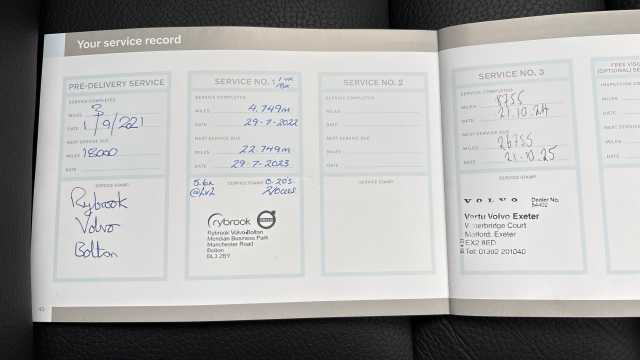 Your service record
PRE-DELIVERY SERVICE
SERVICE COMPLETED
MILES 3
DATE 1/9/221
NEXT SERVICE DUE
MILES 18000
DATE
SERVICE STAMP
Rybrook
Volvo
Bolton
SERVICE NO. 1
SERVICE COMPLETED
MILES 4.749m
DATE 29-7-2022
NEXT SERVICE DUE
MILES 22.749m
DATE 29-7-2023
5.6L SERVICE STAMP 0-20S
rybrook
Rybrook Volvo-Bolton
Meridian Business Park
Manchester Road
Bolton
SERVICE NO. 2
SERVICE COMPLETED
MILES
DATE
NEXT SERVICE DUE
MILES
DATE
SERVICE STAMP
SERVICE NO. 3
SERVICE COMPLETED
MILES 8755
DATE 21.10.24
NEXT SERVICE DUE
MILES 26755
DATE 21.10.25
SERVICE STAMP
VOLVO Dealer No.
Vertu Volvo Exeter
Waterbridge Court
Matford, Exeter
EX2 8ED
Tel: 01392 201040
FREE
(OPTIONAL)
MILES
DATE
MILES
DATE